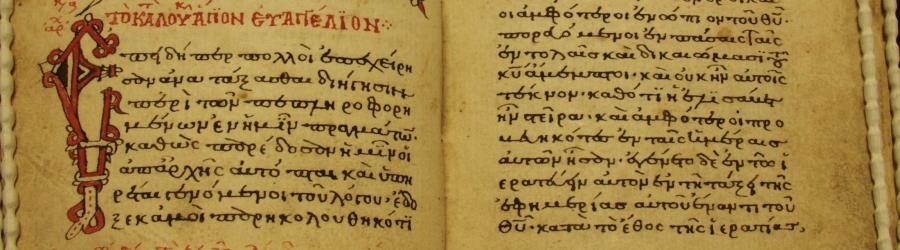 ΤΟ ΚΑ ΛΟΥ ΑΓΙΟΝ ΕΥΑΓΓΕΛΙΟΝ
Ἐπειδήπερ πολλοὶ ἐπεχείρη
σαν ἀνατάξασθαι διήγησιν
περὶ τῶν πεπληροφορη
μένων ἐν ἡμῖν πραγμάτω·
καθὼς παρέδοσαν ἡμῖν οἱ
ἀπαρχῆς αὐτόπται καὶ ὑπη
ρέται γενόμενοι τοῦ λόγου· ἔδο
ξε κἀμοὶ παρηκολουθηκότι
οι ἀμφότεροι ἐνώπιον τοῦ θῦ·
πορευόμενοι ἐν πάσαις ταῖς
ἐντολαῖς καὶ δικαιώμασι τοῦ
κῦ ἄμεμπτοι· καὶ οὐκ ἦν αὐτοῖς
τέκνον· καθότι ἡ ἐλισάβετ
ἦν στεῖρα· καὶ ἀμφότεροι προ
βεβηκότες ἐν ταῖς ἡμέραις
αὐτῶν ἦσαν· ἐγένετο δὲ ἐν τῷ ἱ
ερατεύειν αὐτὸν ἐν τῇ τάξει τῆς
ἐφημερίας αὐτοῦ ἔναντι τοῦ
θῦ· κατὰ τὸ ἔθος τῆς ἱερατίας,